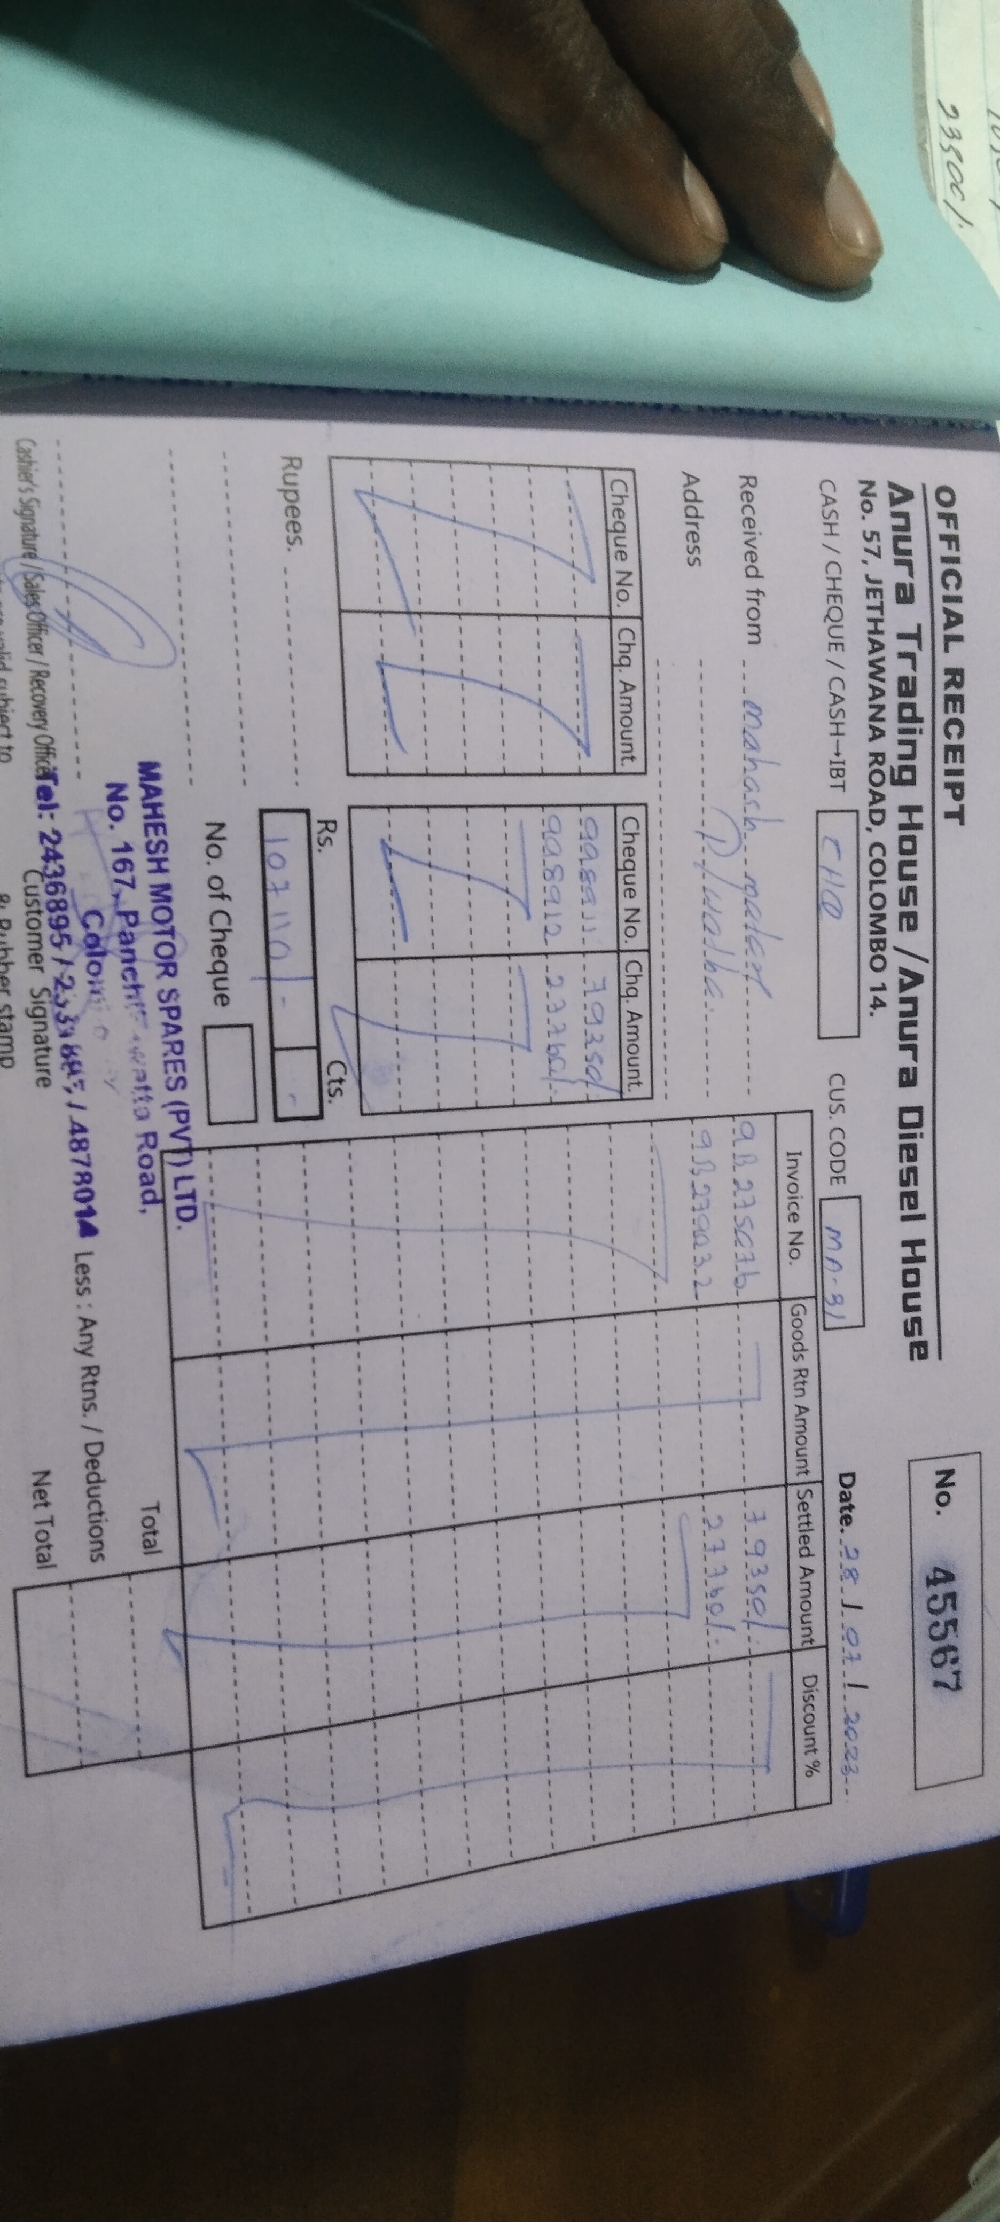 23500/.
OFFICIAL RECEIPT
No. 45567
Anura Trading House / Anura Diesel House
No. 57, JETHAWANA ROAD, COLOMBO 14.
CASH / CHEQUE / CASH→IBT CHQ CUS. CODE MA-91 Date. 28 / 07 / 2023
Received from mahash
Address
Cheque No. Chq. Amount Cheque No. Chq. Amount.
998911 79350/.
998912 27760/.
Invoice No. Goods Rtn Amount Settled Amount Discount %
79350/.
27760/.
Rs. Cts.
Rupees. 107110/- -
No. of Cheque
MAHESH MOTOR SPARES (PVT) LTD.
No. 167, Road,
Tel: 2436895 / 4878014
Total
Less : Any Rtns. / Deductions
Net Total
Cashier's Signature / Sales Officer / Recovery Officer
Customer Signature
valid subject to
Rubber stamp